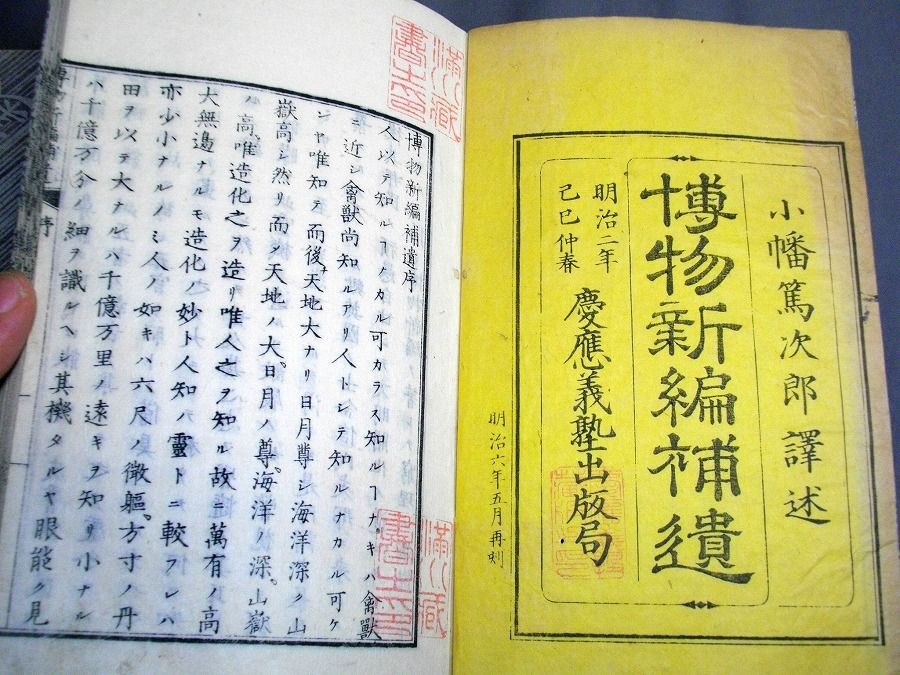 小幡篤次郎譯述
博物新編補遺
明治二年
己巳仲春
慶應義塾出版局
明治六年五月再刻
博物新編補遺序
人以テ知ルヿノカル可カラス知ルヿナキハ禽獸
ニ近シ禽獸尚知ルアリ人トシテ知ルナカル可ケ
ンヤ唯知テ而後天地大ナリ日月尊シ海洋深ク山
嶽高シ然リ而〆天地ノ大。日月ノ尊。海洋ノ深。山嶽
ノ高。唯造化之ヲ造リ唯人之ヲ知ル故ニ萬有ノ高
大無邉ナルモ造化ノ妙ト人知ノ靈トニ較フレハ
亦少小ナルノミ人ノ如キハ六尺ノ微軀。方寸ノ丹
田ヲ以テ大ナルハ千億万里ノ遠キヲ知リ小ナル
ハ千億万分ノ細ヲ識ルヘシ其機タルヤ眼能ク見
序